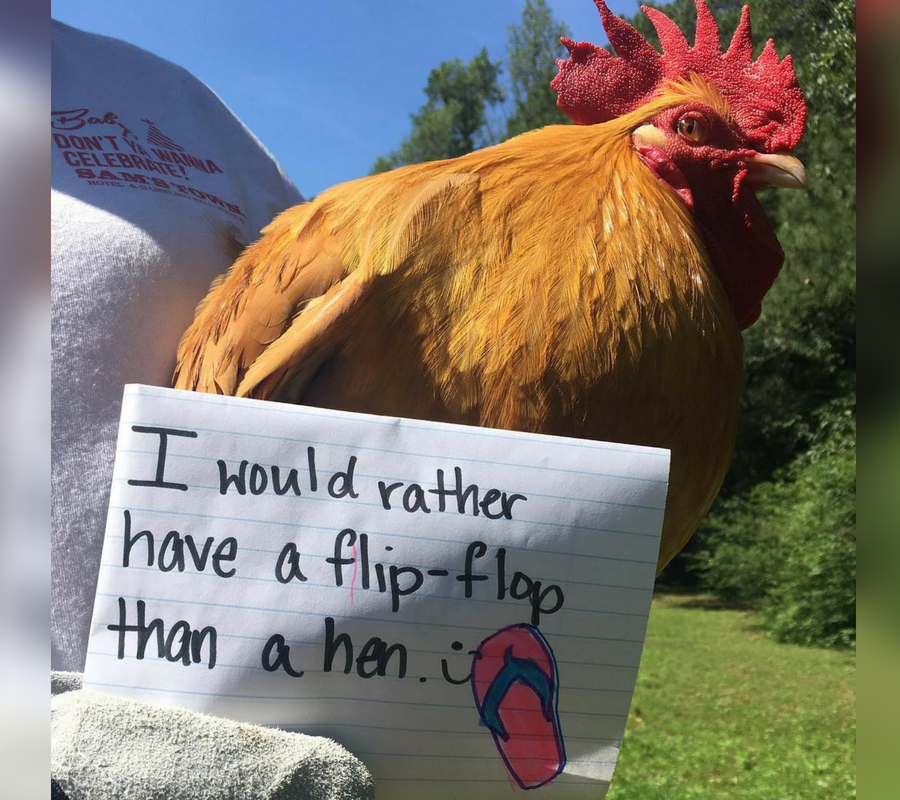 Baby,
DON'T YA WANNA
CELEBRATE!
SAM'S TOWN
HOTEL &
I would rather
have a flip-flop
than a hen. :)